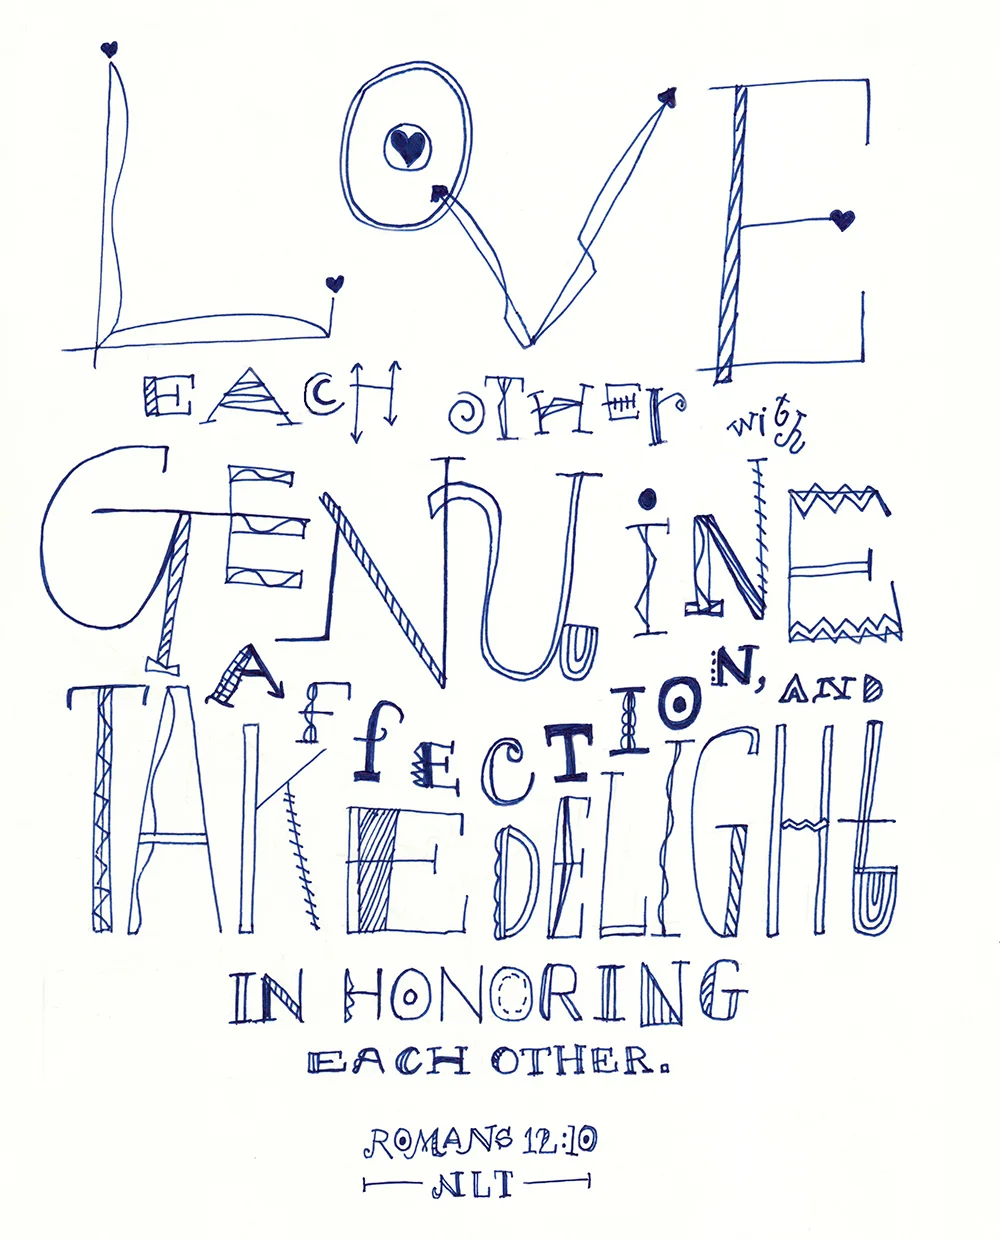 LOVE
EACH OTHEr with
GENUiNE
AFfECTION, AND
TAKE DELIGHt
IN HONORING
EACH OTHER.
ROMANS 12:10
NLT